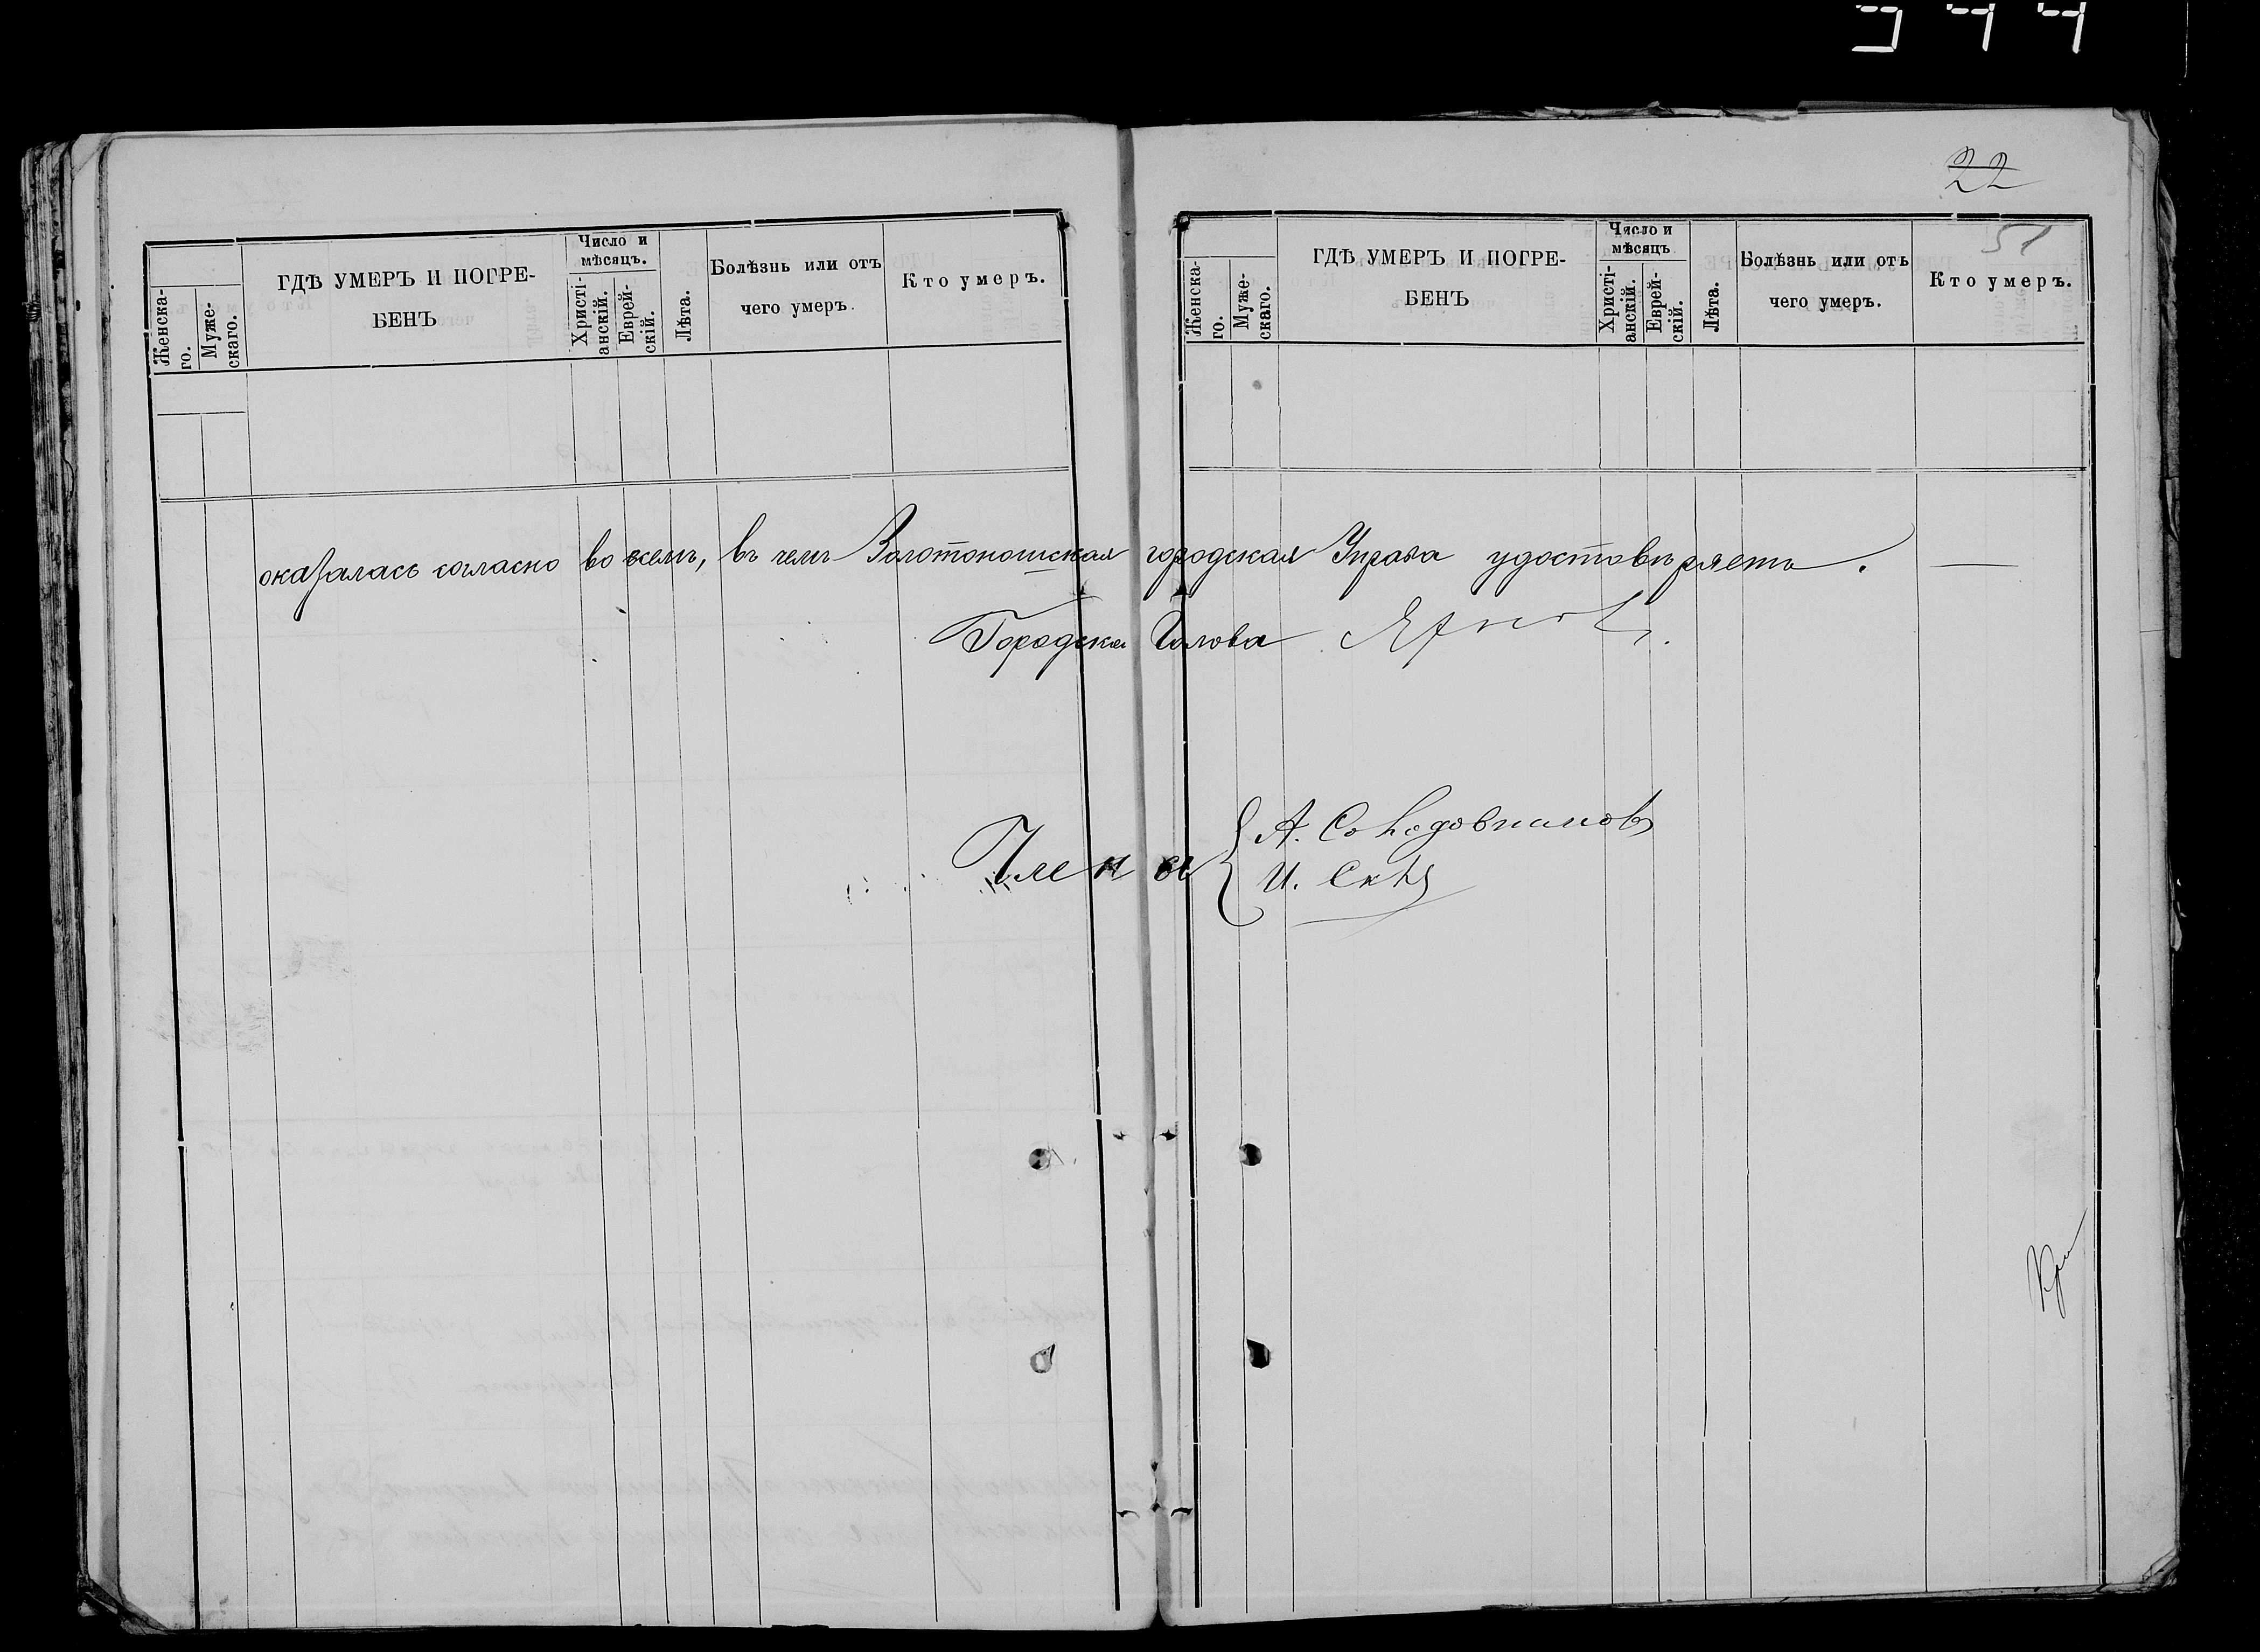 22
51
Женска-
го.
Муже-
скаго.
ГДѢ УМЕРЪ И ПОГРЕ-
БЕНЪ
Число и
мѣсяцъ.
Христі-
анскій.
Еврей-
скій.
Лѣта.
Болѣзнь или отъ
чего умеръ.
Кто умеръ.
Женска-
го.
Муже-
скаго.
ГДѢ УМЕРЪ И ПОГРЕ-
БЕНЪ
Число и
мѣсяцъ
Христі-
анскій.
Еврей-
скій.
Лѣта.
Болѣзнь или отъ
чего умеръ.
Кто умеръ.
оказалась согласно во всемъ, въ чемъ Золотоношская городская Управа удостовѣряетъ.
Городской Голова
Члены
А.
И.